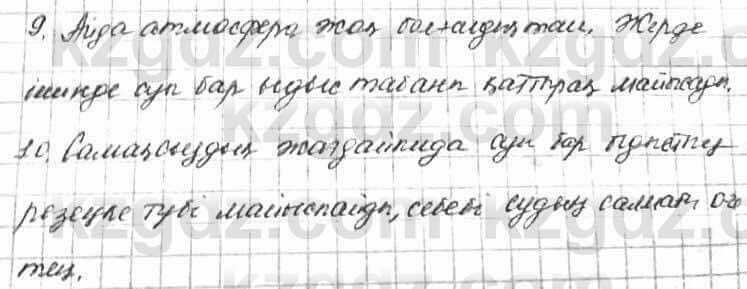 9. Айда атмосфера жоқ болғандықтан, Жерде
ішінде суы бар ыдыс табаны қаттырақ майысады.
10. Салмақсыздық жағдайында суы бар ыдыстың
резеңке түбі майыспайды, себебі судың салмағы 0-ге
тең.